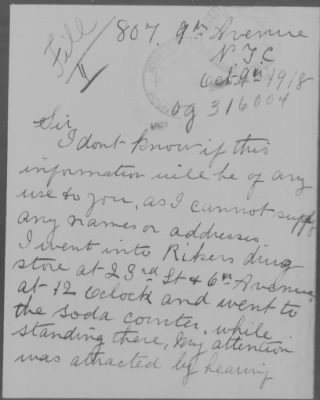 File
807. 9th Avenue
N.Y.C
Oct 9th 1918
OG 316004
Sir
I dont know if this
information will be of any
use to you, as I cannot supply
any names or addresses.
I went into Rikers drug
store at 23rd St & 6th Avenue
at 12 Oclock and went to
the soda counter. while
standing there, my attention
was attracted by hearing